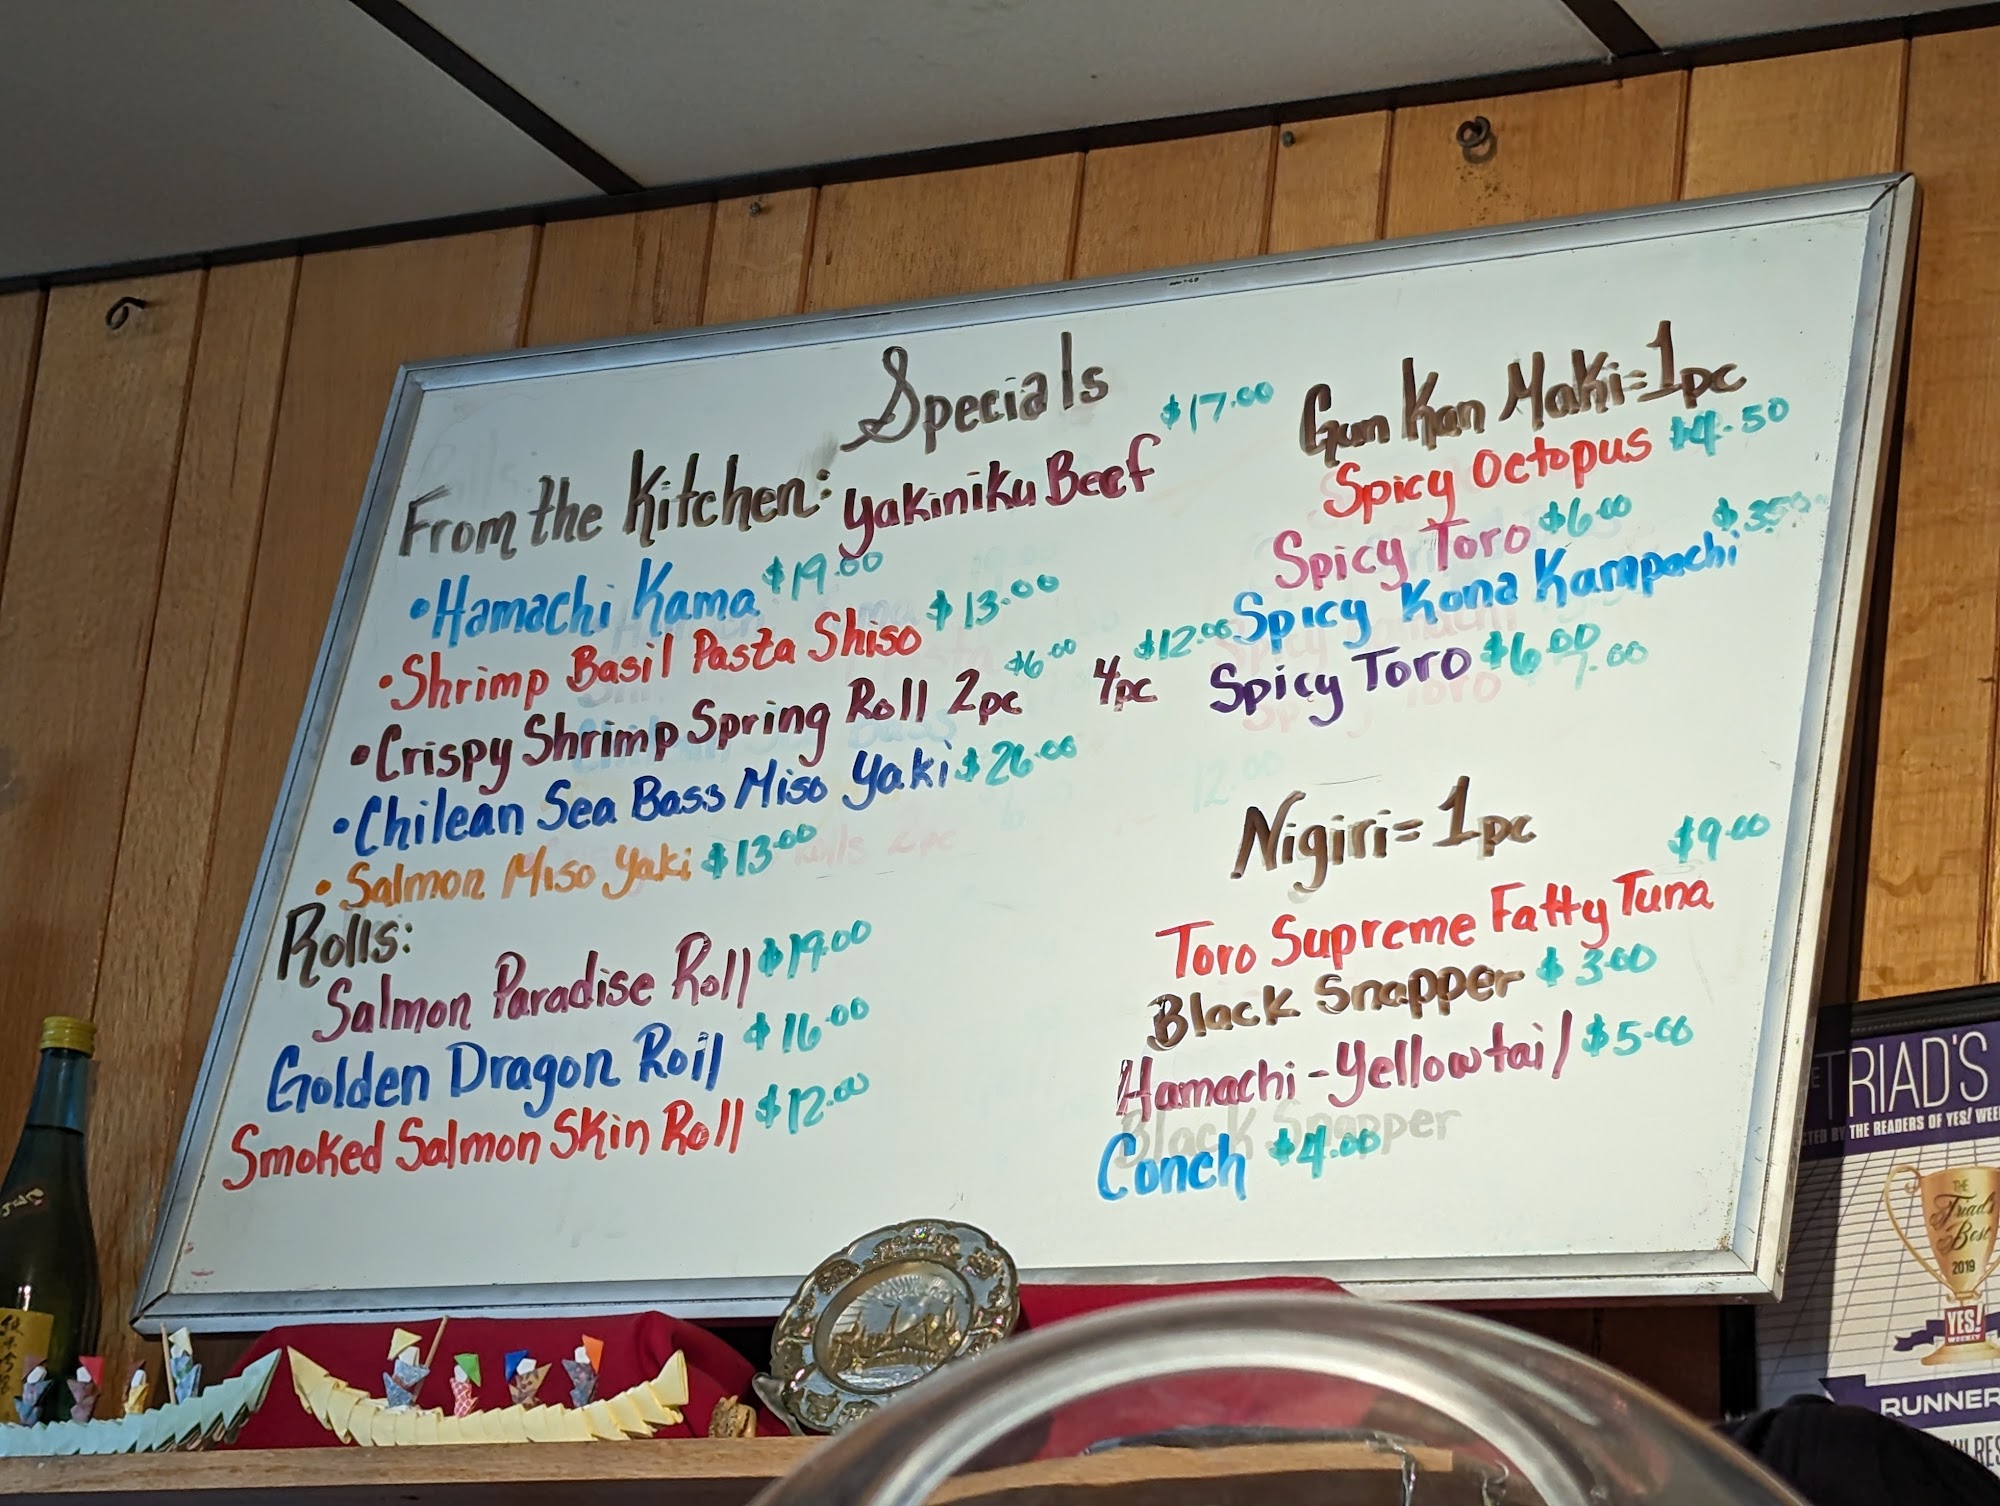 Specials
From the Kitchen: Yakiniku Beef $17.00
•Hamachi Kama $19.00
•Shrimp Basil Pasta Shiso $13.00
•Crispy Shrimp Spring Roll 2pc $6.00 4pc $12.00
•Chilean Sea Bass Miso Yaki $26.00
•Salmon Miso Yaki $13.00
Rolls:
Salmon Paradise Roll $19.00
Golden Dragon Roll $16.00
Smoked Salmon Skin Roll $12.00
Gun Kan Maki=1pc
Spicy Octopus $4.50
Spicy Toro $6.00
Spicy Kona Kampachi $3.50
Spicy Toro $6.00
7.00
12.00
Nigiri=1pc
Toro Supreme Fatty Tuna $9.00
Black Snapper $3.00
Hamachi-Yellowtail $5.00
Black Snapper
Conch $4.00
TRIAD'S
BY THE READERS OF YES!
THE
Triad's
Best
2019
YES!
RUNNER